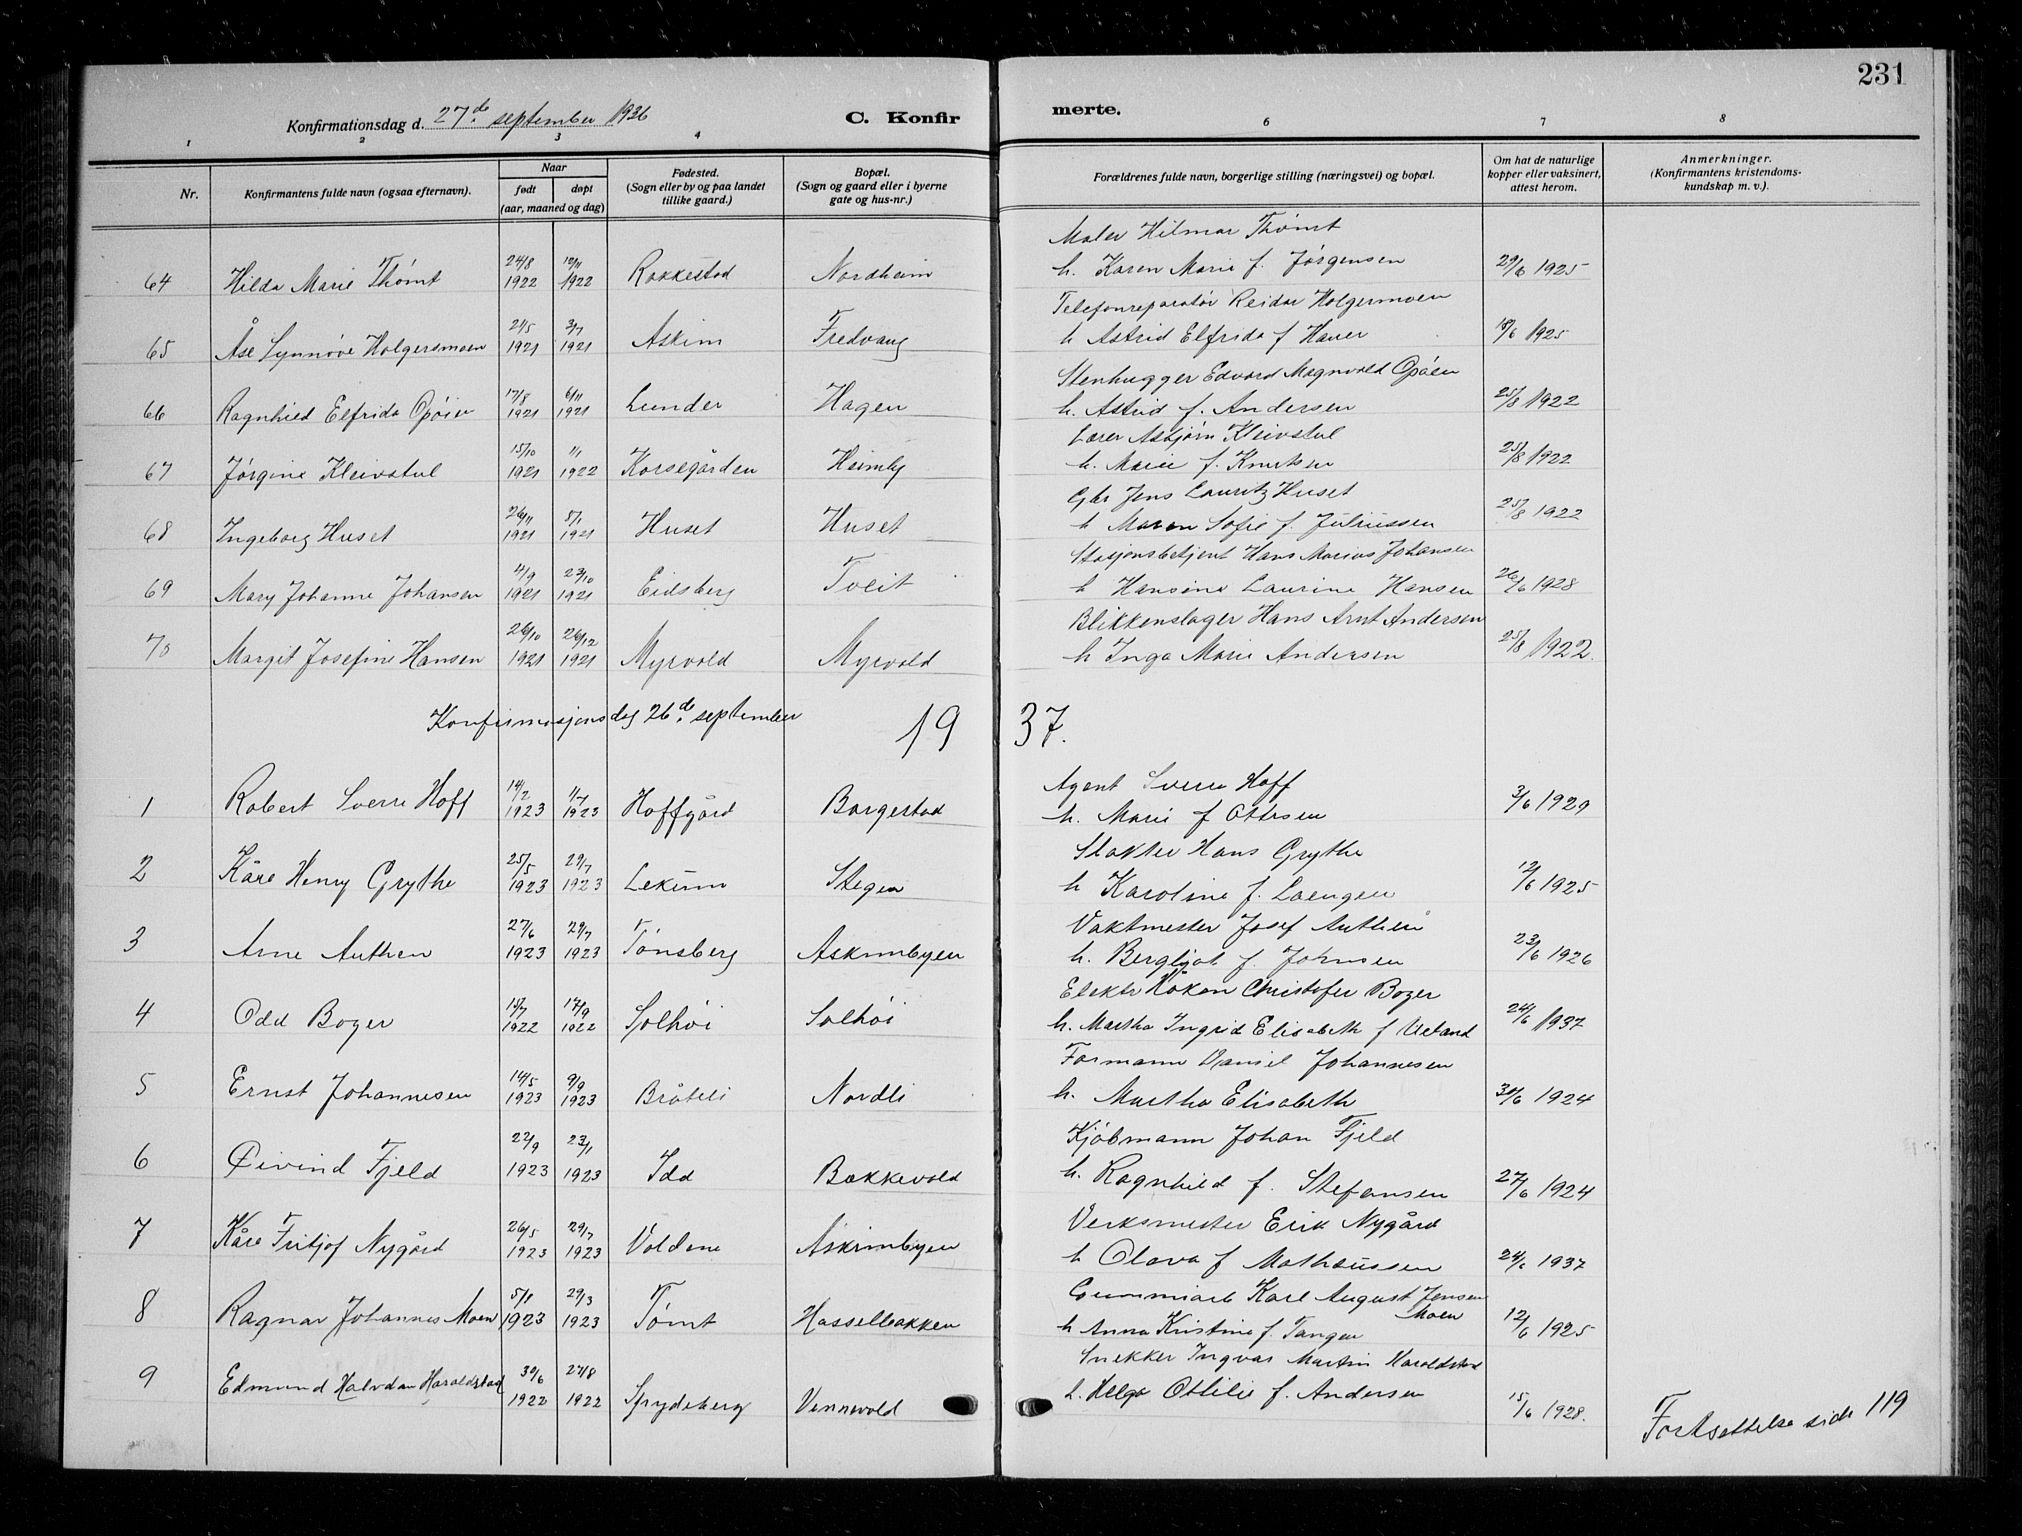 231
Konfirmationsdag d. 27de september 1936
C. Konfir
merte.
1 2 3 4 6 7 8
Nr.
Konfirmantens fulde navn (ogsaa efternavn).
Naar
født
døpt
(aar, maaned og dag)
Fødested.
(Sogn eller by og paa landet
tillike gaard.)
Bopæl.
(Sogn og gaard eller i byerne
gate og hus-nr.)
Forældrenes fulde navn, borgerlige stilling (næringsvei) og bopæl.
Om hat de naturlige
kopper eller vaksinert,
attest herom.
Anmerkninger.
(Konfirmantens kristendoms-
kundskap m. v.).
Maler Hilmar Thømt
64 Hilda Marie Thømt 24/8 1922 12/11 1922 Rakkestad Nordheim h. Karen Marie f. Jørgensen 29/6 1925
Telefonreparatør Reidar Holgersmoen
65 Åse Synnøve Holgersmoen 21/5 1921 3/7 1921 Askim Fredvang h Astrid Elfrida f Hauer 18/6 1925
Stenhugger Edvard Magnvald Opøien
66 Ragnhild Elfrida Opøien 17/8 1921 6/11 1921 Lunder Hagen h. Astrid f. Andersen 25/8 1922
Lærer Asbjørn Kleivstul
67 Jørgine Kleivstul 15/10 1921 1/1 1922 Korsegården Heimly h. Marie f. Knutsen 25/8 1922
Gbr Jens Lauritz Huset
68 Ingeborg Huset 26/11 1921 5/1 1921 Huset Huset h Maren Sofie f. Juliussen 25/8 1922
Stasjonsbetjent Hans Marius Johansen
69 Mary Johanne Johansen 4/9 1921 23/10 1921 Eidsberg Tveit h Hansine Laurine Hansen 26/6 1928
Blikkenslager Hans Arnt Andersen
70 Margit Josefine Hansen 26/10 1921 26/12 1921 Myrvold Myrvold h Inga Marie Andersen 25/8 1922.
Konfirmasjonsdag 26de september 1937.
Agent Sverre Hoff
1 Robert Sverre Hoff 14/2 1923 1/4 1923 Hoffgård Borgestad h. Marie f Ottesen 3/6 1929
Slakter Hans Grythe
2 Kåre Henry Grythe 25/5 1923 29/7 1923 Lekum Stegen h Karoline f. Laengen 12/6 1925
Vaktmester Josef Authen
3 Arne Authen 27/6 1923 29/7 1923 Tønsberg Askimbyen h. Bergljot f. Johnsen 23/6 1926
Elektr Håkon Christofer Bozer
4 Odd Bozer 15/7 1922 17/9 1922 Solhøi Solhøi h. Martha Ingrid Elisabeth f Ueland 24/6 1937
Formann Daniel Johannesen
5 Ernst Johannesen 14/5 1923 9/9 1923 Bråteli Nordli h. Martha Elisabeth 30/6 1924
Kjøbmann Johan Fjeld
6 Øivind Fjeld 22/9 1923 23/1 1923 Idd Bakkevold h. Ragnhild f. Stefansen 27/6 1924
Verksmester Erik Nygård
7 Kåre Fritjof Nygård 26/5 1923 29/7 1923 Voldene Askimbyen h Olava f Mathæussen 24/6 1937
Gummiarb Karl August Jensen Moen
8 Ragnar Johannes Moen 5/1 1923 29/3 1923 Tømt Hasselbakken h Anna Kristine f. Tangen 12/6 1925
Snekker Ingvar Martin Haraldstad
9 Edmund Halvdan Haraldstad 30/6 1922 27/8 1922 Spydeberg Vennevold h. Helga Ottilie f. Andersen 15/6 1928.
Fortsettelse side 119